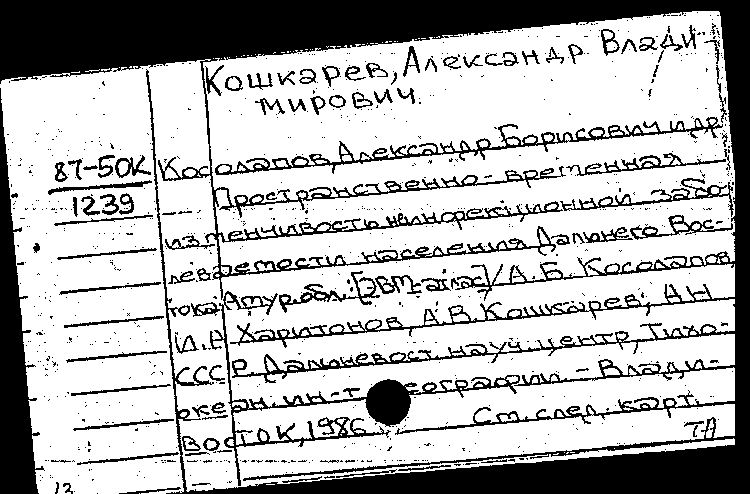 Кошкарев, Александр Влади-
мирович.
87-50К Косолапов, Александр Борисович и др
1239 Пространственно-временная
изменчивость неинфекционной забо-
леваемости населения Дальнего Вос-
тока: Амур. обл.: [ЭВМ-атлас] / А. Б. Косолапов,
И. А Харитонов, А. В. Кошкарев; АН
СССР. Дальневост. науч. центр, Тихо-
океан. ин-т географии. - Влади-
восток, 1986
См. след. карт.
ТА